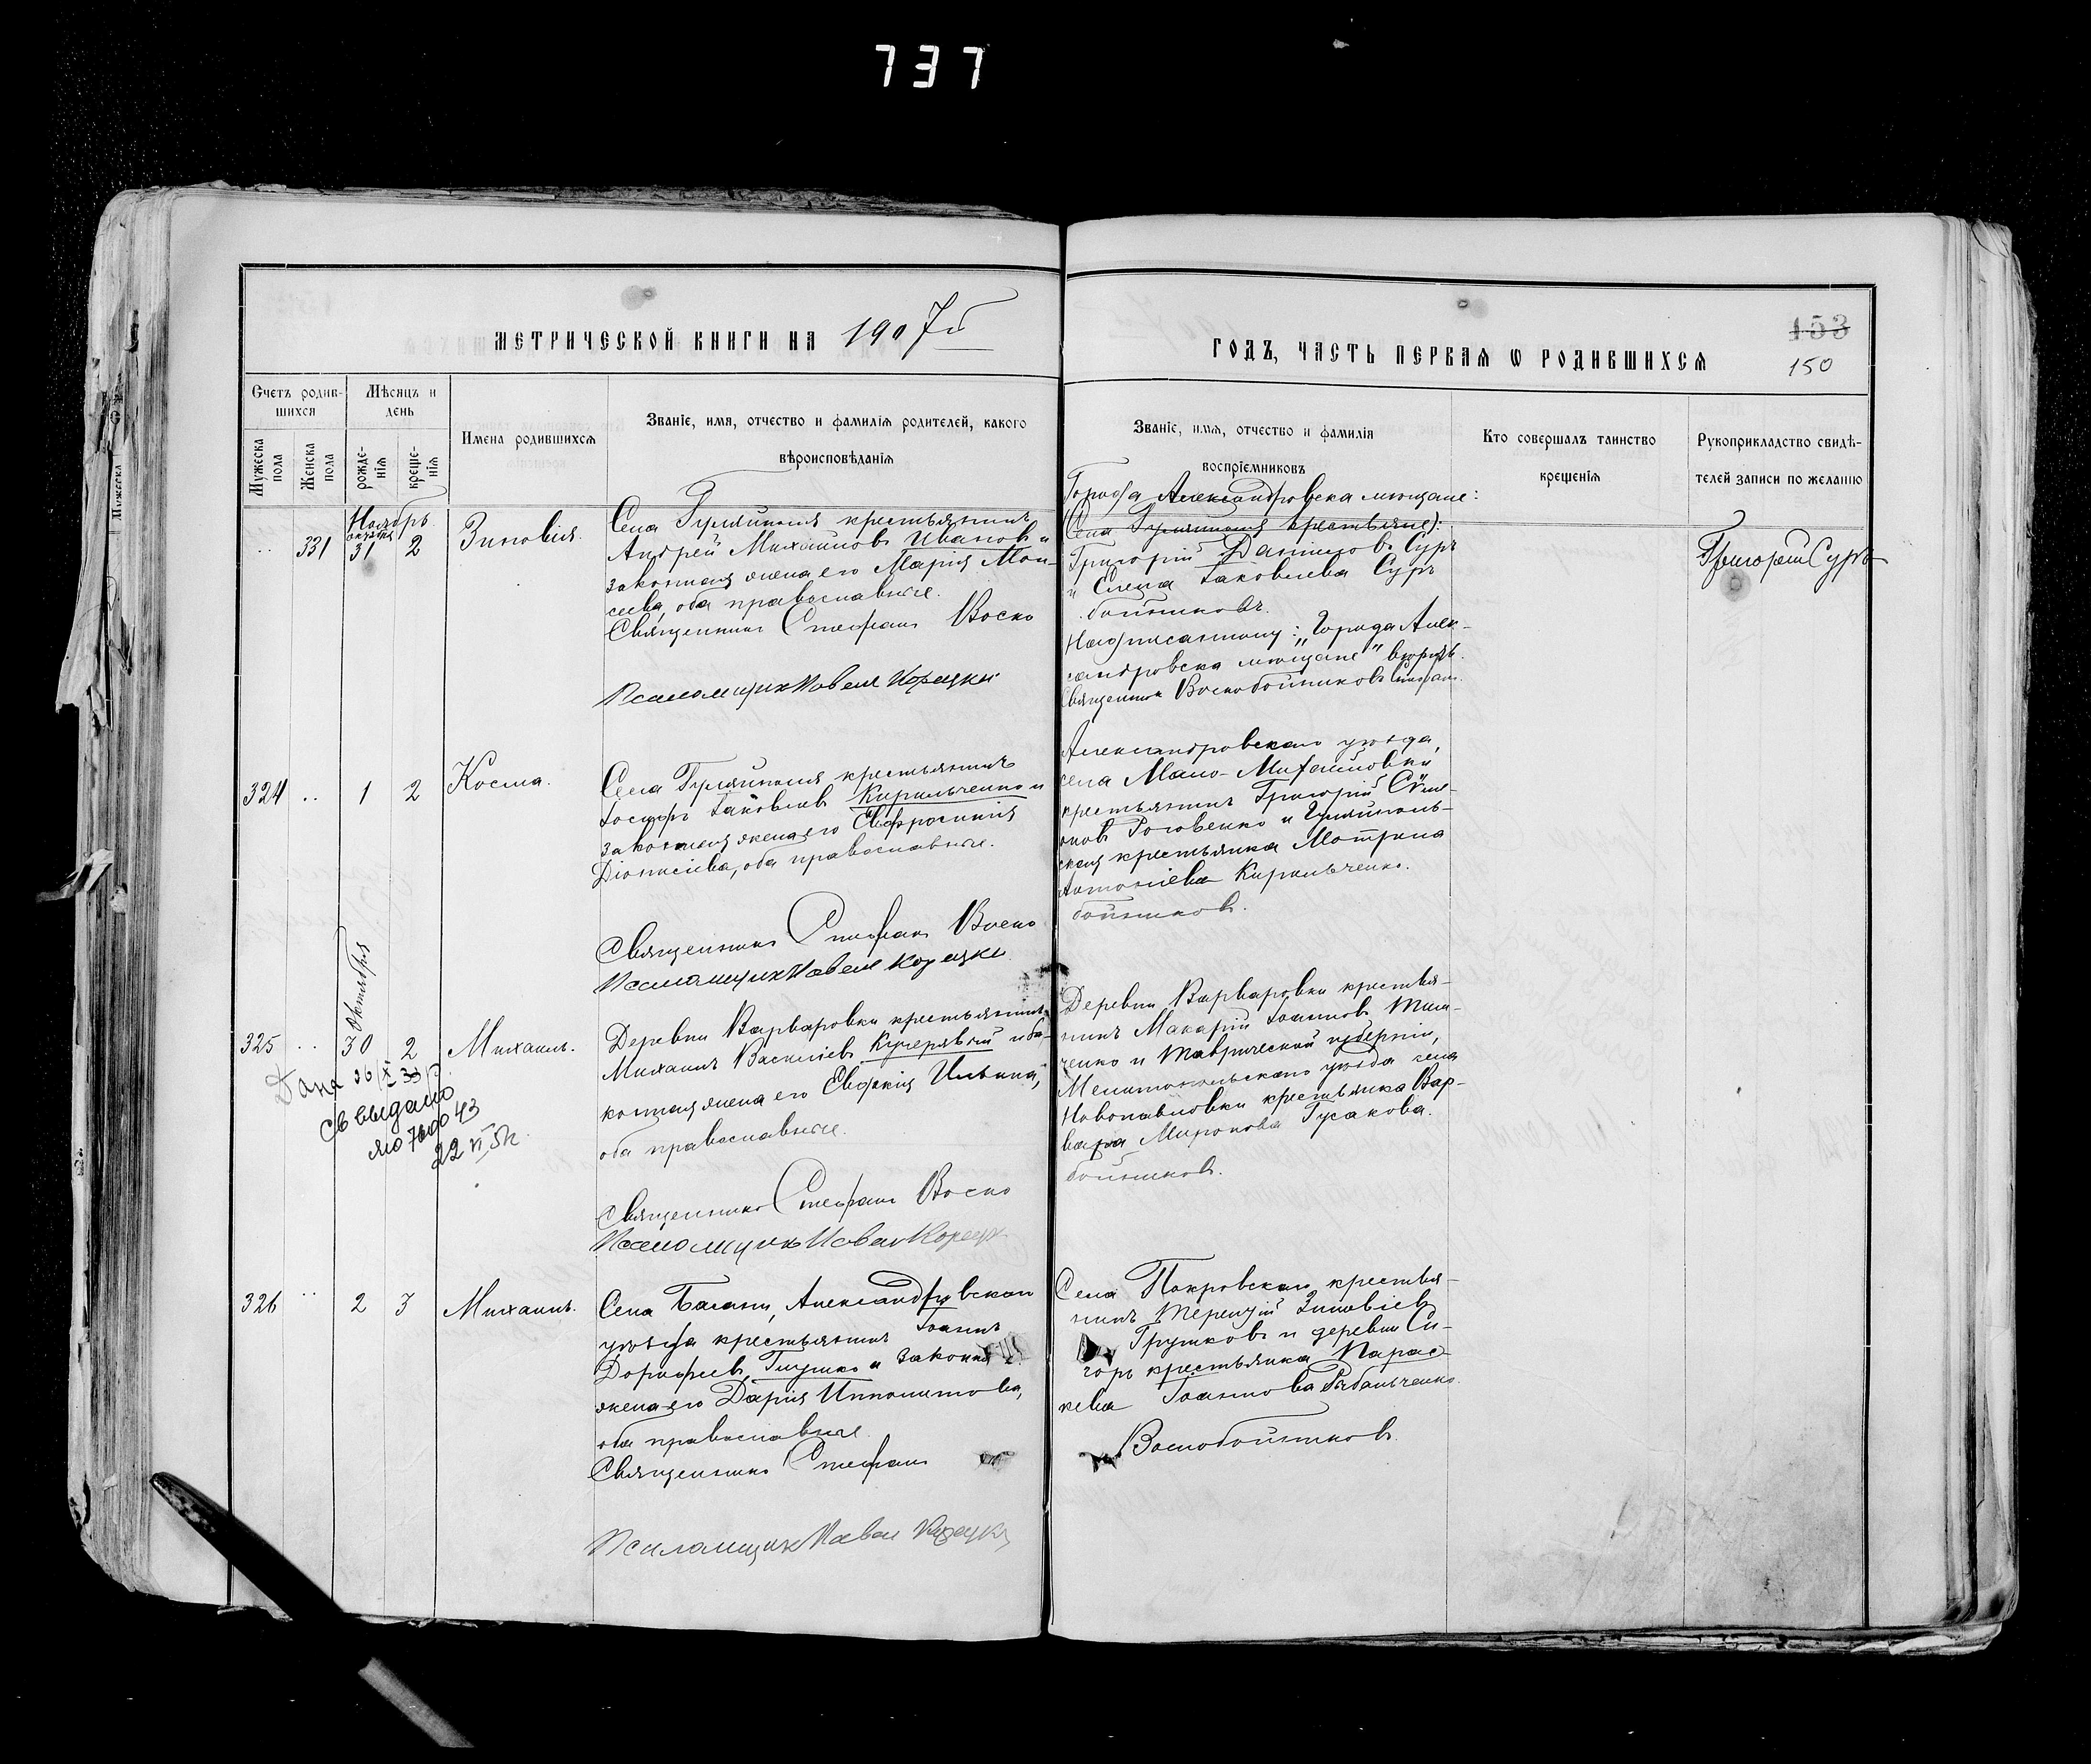 737
МЕТРИЧЕСКОЙ КНИГИ НА 1907й
ГОДЪ, ЧАСТЬ ПЕРВАЯ Ѡ РОДИВШИХСЯ
153
150
Счетъ родив-
шихся
Мужеска пола
Женска пола
Мѣсяцъ и
день
рожде-
нія
креще-
нія
Имена родившихся
Званіе, имя, отчество и фамилія родителей, какого
вѣроисповѣданія
Званіе, имя, отчество и фамилія
воспріемниковъ
Кто совершалъ таинство
крещенія
Рукоприкладство свидѣ-
телей записи по желанію
Ноябрь
октября
331 31 2 Зиновія.
Села Гуляйполя крестьянинъ
Андрей Михайловъ Ивановъ и
законная жена его Марія Мои-
сеева, оба православные.
Священникъ Стефанъ Воско
Псаломщикъ Павелъ Корецкій
Города Александровска мѣщане:
(Села Гуляйполя крестьяне):
Григорій Даніиловъ Суръ
и Елена Іаковлева Суръ
бойниковъ.
Надписанному: „Города Алек-
сандровска мѣщане" вѣрить.
Священник Воскобойниковъ Стефан.
Григорій Суръ
324 1 2 Косма.
Села Гуляйполя крестьянинъ
Іосифъ Іаковлевъ Кирильченко и
законная жена его Евфросинія
Діонисіева, оба православные.
Священникъ Стефанъ Воско
Псаломщикъ Павелъ Корецкій
Александровскаго уѣзда,
села Мало-Михайловки
крестьянинъ Григорій Сүме-
оновъ Роговенко и Гуляйполь-
ская крестьянка Мотрона
Антоніева Кирильченко.
бойниковъ.
Октября
325 30 2 Михаилъ.
Дана 26
св выдано
22 VI
Деревни Варваровки крестьянинъ
Михаилъ Василіевъ Кучерявый и за-
конная жена его Евфимія Ильина,
оба православные.
Священникъ Стефанъ Воско
Псаломщикъ Павелъ Корецк
Деревни Варваровки крестья-
нинъ Макарій Іоанновъ Тим-
ченко и Таврической губерніи,
Мелитопольскаго уѣзда села
Новопавловки крестьянка Вар-
вара Миронова Гусакова.
бойниковъ.
326 2 3 Михаилъ.
Села Басани, Александровскаго
уѣзда крестьянинъ Іоаннъ
Дорофеевъ Глушко и законная
жена его Дарія Ипполитова,
оба православные.
Священникъ Стефанъ
Псаломщикъ Павелъ Корецкій
Села Покровскаго крестья-
нинъ Терентій Зиновіевъ
Грушковъ и деревни Си-
горъ крестьянка Парас-
кева Іоаннова Рыбальченко.
Воскобойниковъ.